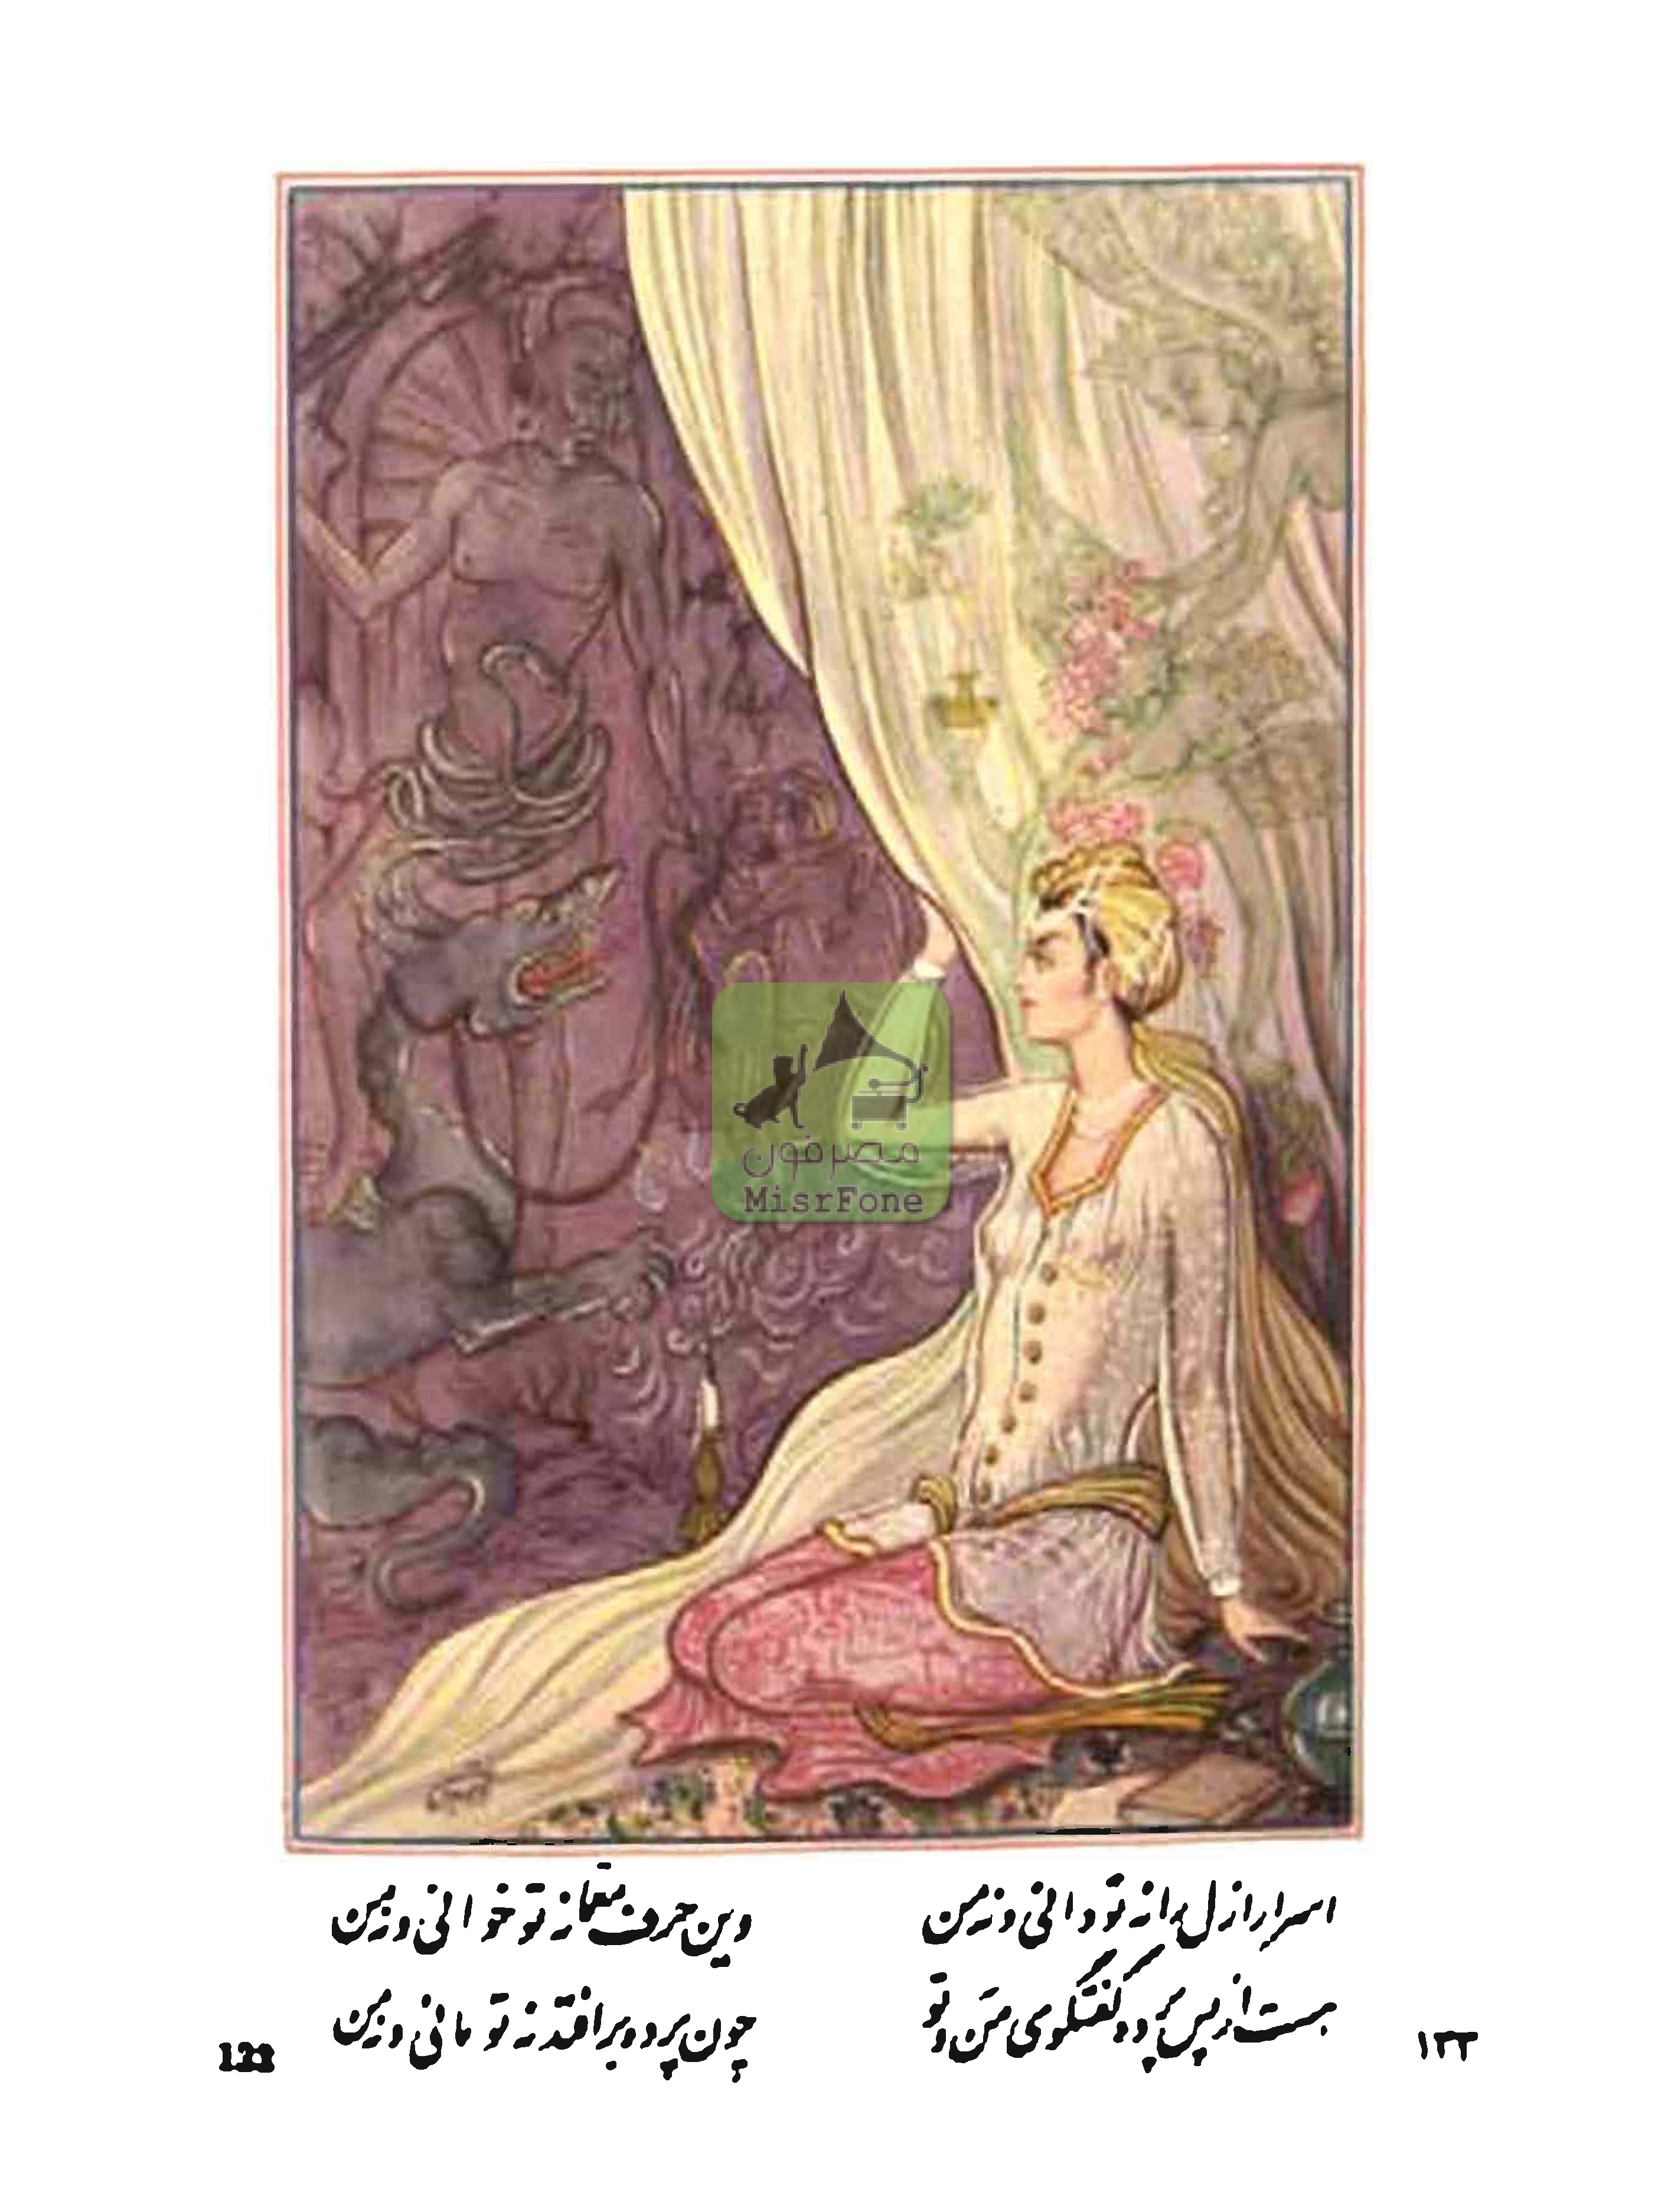 مصرفون
MisrFone
اسرار ازل را نه تو دانی و نه من
وین حرف معما نه تو خوانی و نه من
هست از پس پرده گفتگوی من و تو
چون پرده برافتد نه تو مانی و نه من